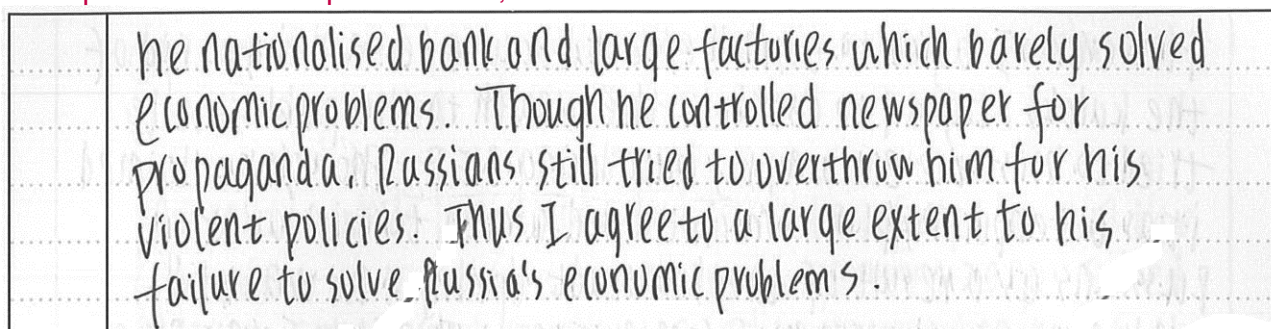 he nationalised bank and large factories which barely solved
economic problems. Though he controlled newspaper for
propaganda. Russians still tried to overthrow him for his
violent policies. Thus I agree to a large extent to his
failure to solve Russia's economic problems.